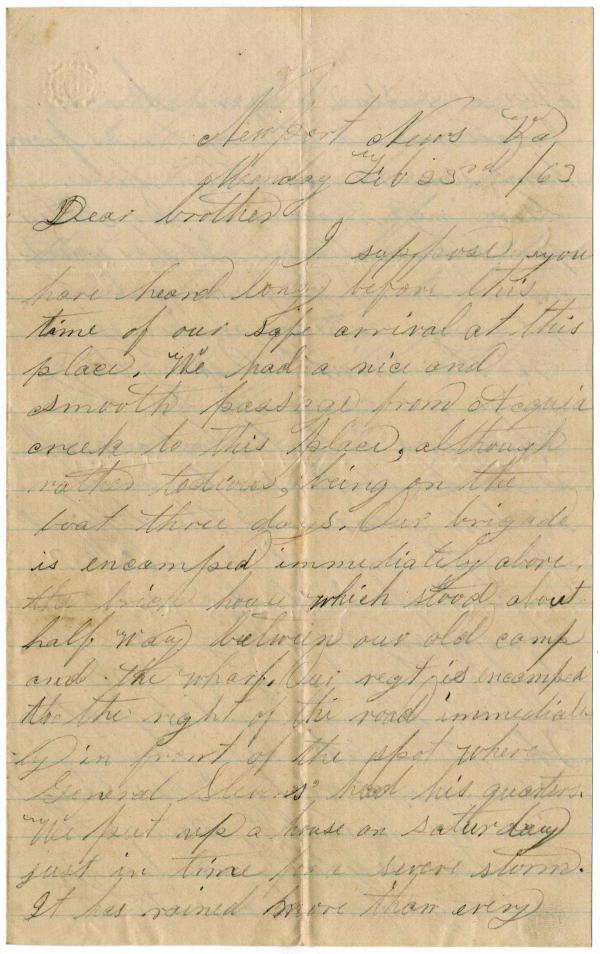 Newport News Va
Monday Feb'y 23rd /63
Dear brother
I suppose you
have heard long before this
time of our safe arrival at this
place. We had a nice and
smooth passage from Acquia
creek to this place, although
rather tedious, being on the
boat three days. Our brigade
is encamped immediately above
the brick house which stood about
half way between our old camp
and the wharf. Our regt is encamped
to the right of the road immediate
ly in front of the spot where
General had his quarters.
We put up a house on Saturday
just in time for a severe storm.
It has rained more than every